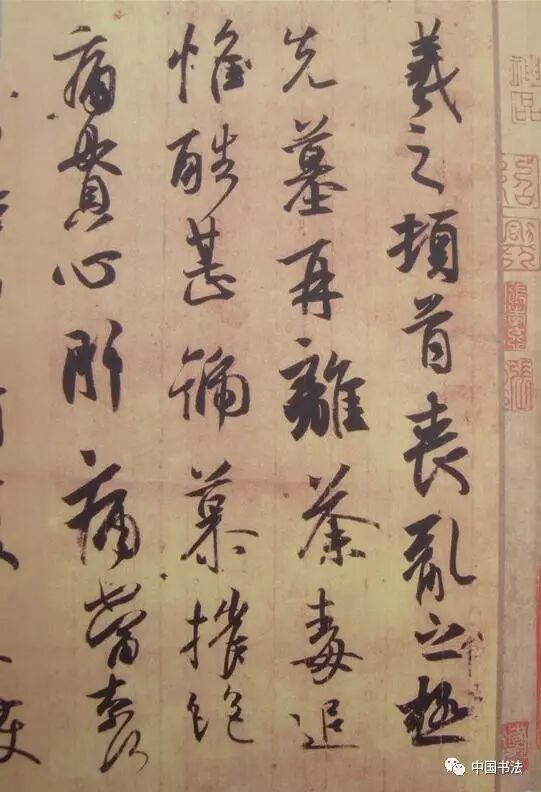 羲之頓首喪亂之極
先墓再離荼毒追
惟酷甚號慕摧絕
痛貫心肝痛當奈何
神品
中国书法